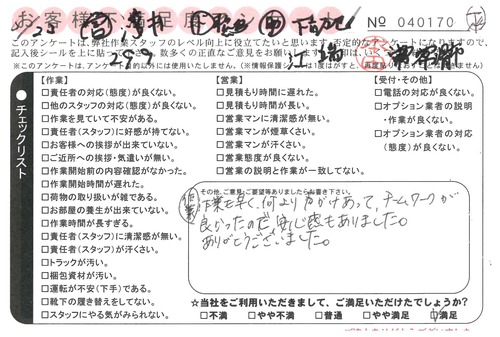 お客様満足度
No 040170
このアンケートは、弊社作業スタッフのレベル向上に役立てたいと思います。否定的なアンケートになりますので、
※本アンケート目的以外には使用いたしません。
チェックリスト
【作業】
□責任者の対応(態度)が良くない。
□他のスタッフの対応(態度)が良くない。
□作業を見ていて不安がある。
□責任者(スタッフ)に好感が持てない。
□お客様への挨拶が出来ていない。
□ご近所への挨拶・気遣いが無い。
□作業開始前の内容確認がなかった。
□作業開始時間が遅れた。
□荷物の取り扱いが雑である。
□お部屋の養生が出来ていない。
□作業時間が長すぎる。
□責任者(スタッフ)に清潔感が無い。
□責任者(スタッフ)が汗くさい。
□トラックが汚い。
□梱包資材が汚い。
□運転が不安(下手)である。
□靴下の履き替えをしてない。
□スタッフにやる気がみられない。
【営業】
□見積もり時間に遅れた。
□見積もり時間が長い。
□営業マンに清潔感が無い。
□営業マンが煙草くさい。
□営業マンが汗くさい。
□営業態度が良くない。
□営業の説明と作業が一致してない。
【受付・その他】
□電話の対応が良くない。
□オプション業者の説明
・作業が良くない。
□オプション業者の対応
(態度)が良くない。
その他、ご意見・ご要望等ありましたらお書き下さい。
作業も早く、何より声がけあって、チームワークが
良かったので安心感もありました。
ありがとうございました。
☆当社をご利用いただきまして、ご満足いただけたでしょうか?
□不満 □やや不満 □普通 □やや満足 □満足